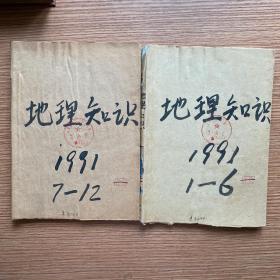 地理知识
1991
7-12
地理知识
1991
1-6